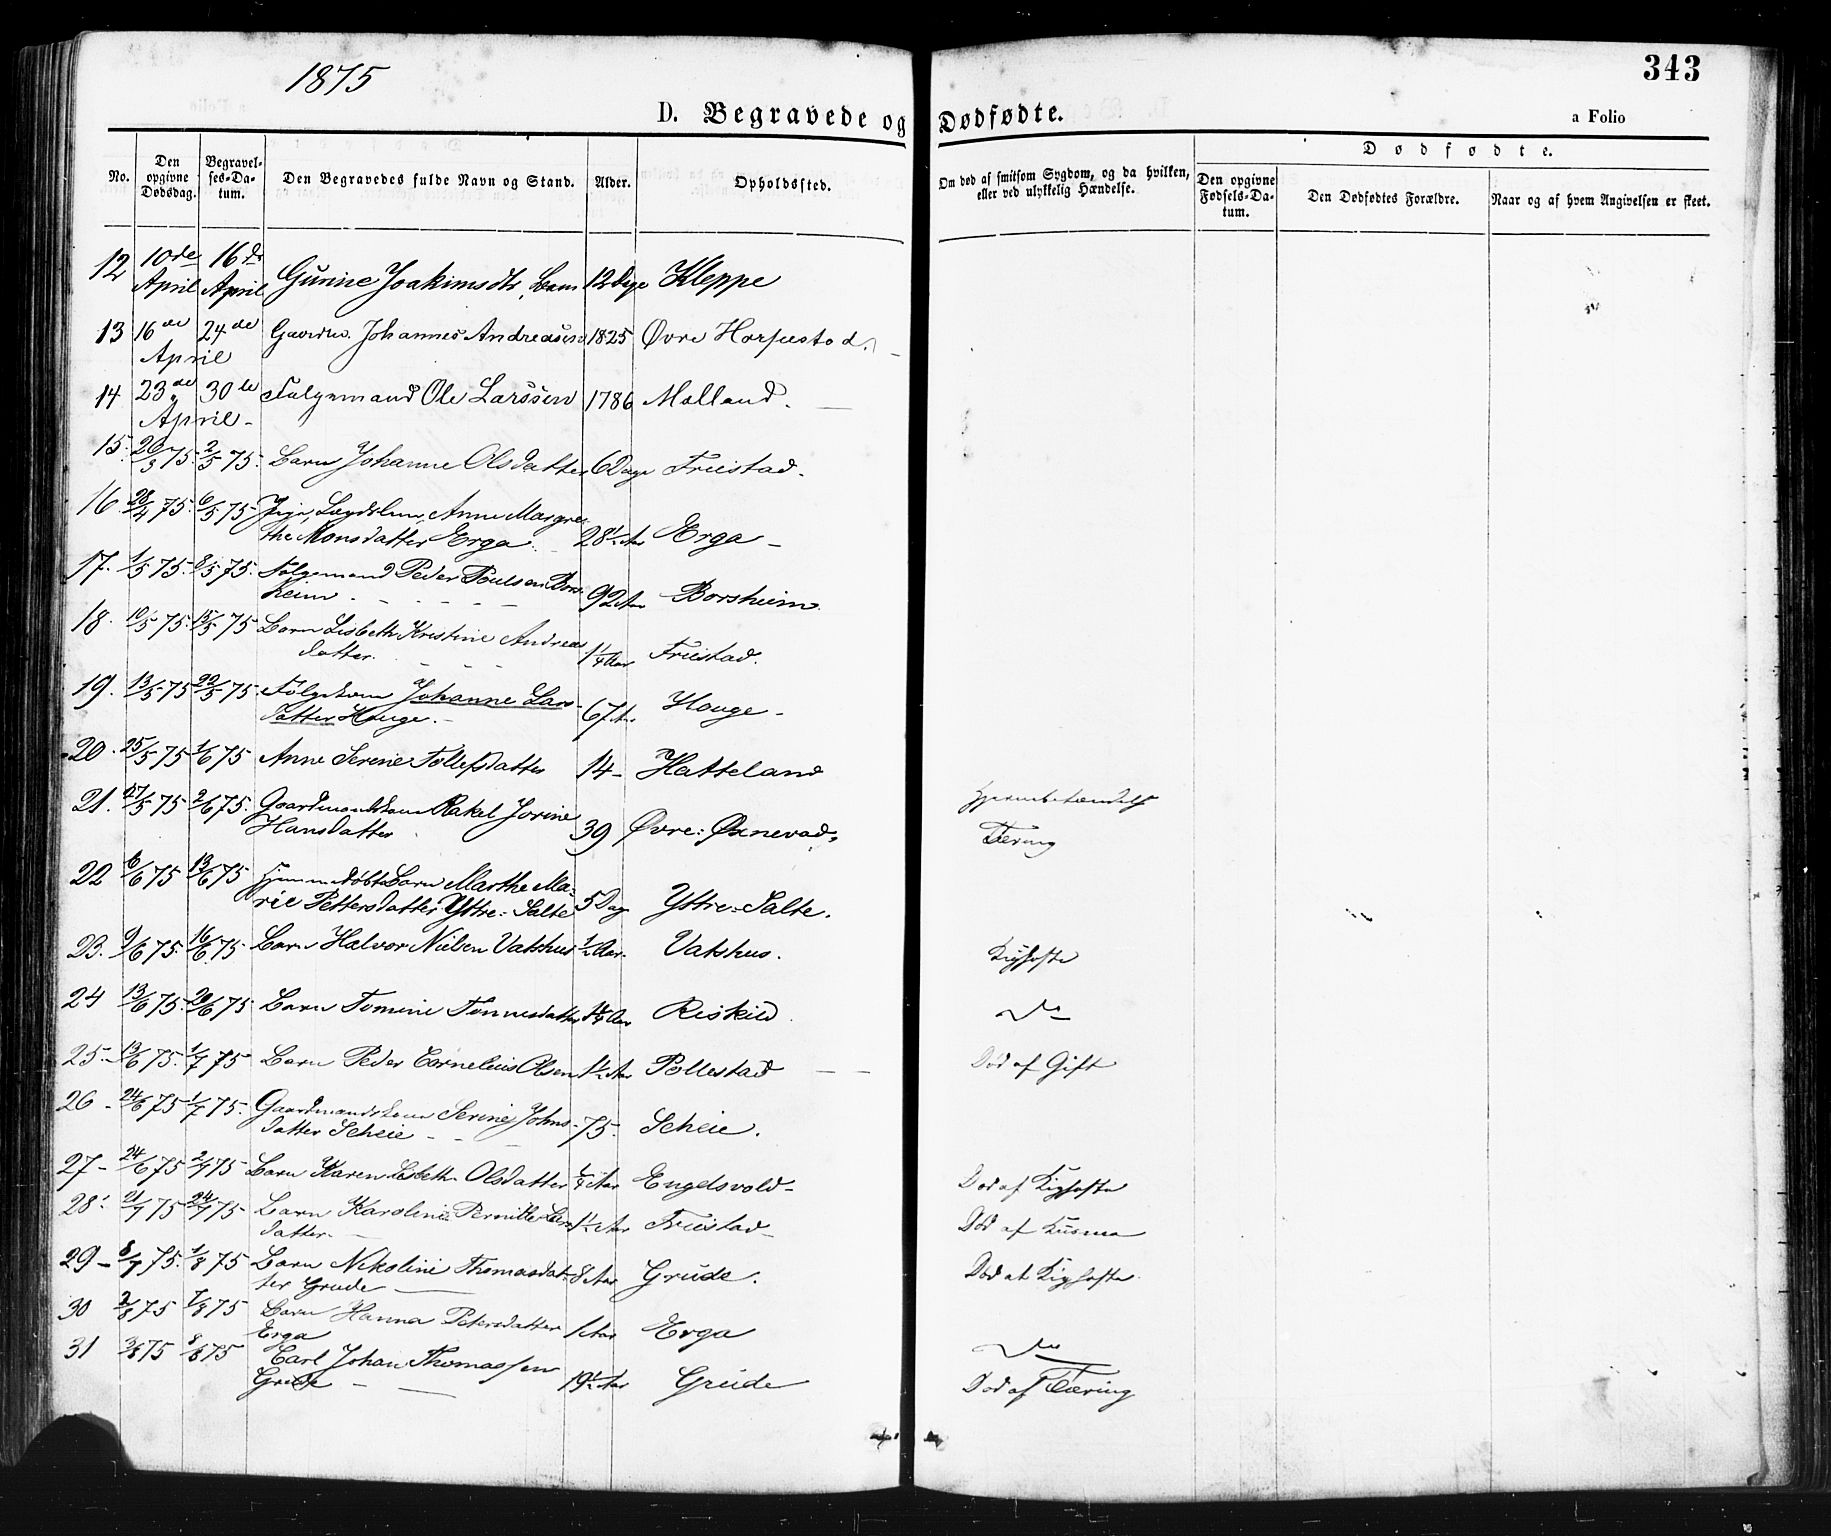 1875
343
D. Begravede og Dødfødte.
a Folio
No.
Den opgivne Dødsdag.
Begravelses-Datum.
Den Begravedes fulde Navn og Stand.
Alder.
Opholdssted.
Om død af smitsom Sygdom, og da hvilken, eller ved ulykkelig Hændelse.
Dødfødte.
Den opgivne Fødsels-Datum.
Den Dødfødtes Forældre.
Naar og af hvem Angivelsen er skeet.
12 10de April 16de April Gurine Joakimsdtr, Barn 12 Dage Kleppe
13 16de April 24de Johannes Andreassen 1825 Øvre Horpestad.
14 23de April 30te Følgemand Ole Larssen 1786 Malland.
15. 75. 2/5 75. Barn Johanne Olsdatter 6 Dage Friestad.
16 28/4 75. 6/5 75 Anne Margre-
the Monsdatter Erga. 28½ Aar Erga
17. 1/5 75. 8/5 75. Følgemand Peder Poulsen Bors-
heim 92 Aar Borsheim.
18. 10/5 75. 15/5 75 Barn Lisbeth Kristine Andreas
datter. 1¼ Aar Friestad.
19. 13/5 75 22/5 75. Følgekone Johanne Lars-
datter Houge. 67 Aar Houge
20. 25/5 75 1/6 75 Anne Serine Tollefsdatter 14 Hatteland
21. 27/5 75 2/6 75. Gaardmandskone Rakel Jorine
Hansdatter 39 Øvre: Øxnevad, Hjernebetændelse
Tæring
22 6/6 75 13/6 75 Hjemmedøbt Barn Marthe Ma-
rie Pettersdatter Yttre: Salte 5 Dag Yttre=Salte.
23. 9/6 75. 16/6 75 Barn Halvor Nielsen Vatshus ½ Aar. Vatshus. Kighoste
24 13/6 75. 20/6 75 Barn Tomine Tønnesdatter Aar Riskild Do
25. 13/6 75. 1/7 75 Barn Peder Cornelius Olsen 1½ Aar Pollestad Død af Gift
26 24/6 75 1/7 75. Gaardmandskone Serine Johns-
datter Scheie 75. Scheie.
27 24/6 75 2/7 75 Barn Karen Lisbeth Olsdatter ¼ Aar Engelsvold Død af Kighoste
28. 21/7 75 24/7 75 Barn Karoline Pernille Lars
datter. 1½ Aar Friestad Død af
29 8/7 75. 1/8 75 Barn Nikoline Thomasdat-
ter Grude 8 Aar Grude. Død af Kighoste.
30 2/8 75 7/8 75 Barn Hanna Petersdatter
Erga 1 Aar Erga Do
31 3/8 75 8/8 75 Carl Johan Thomassen
Grude 19½ Aar Grude Død af Tæring